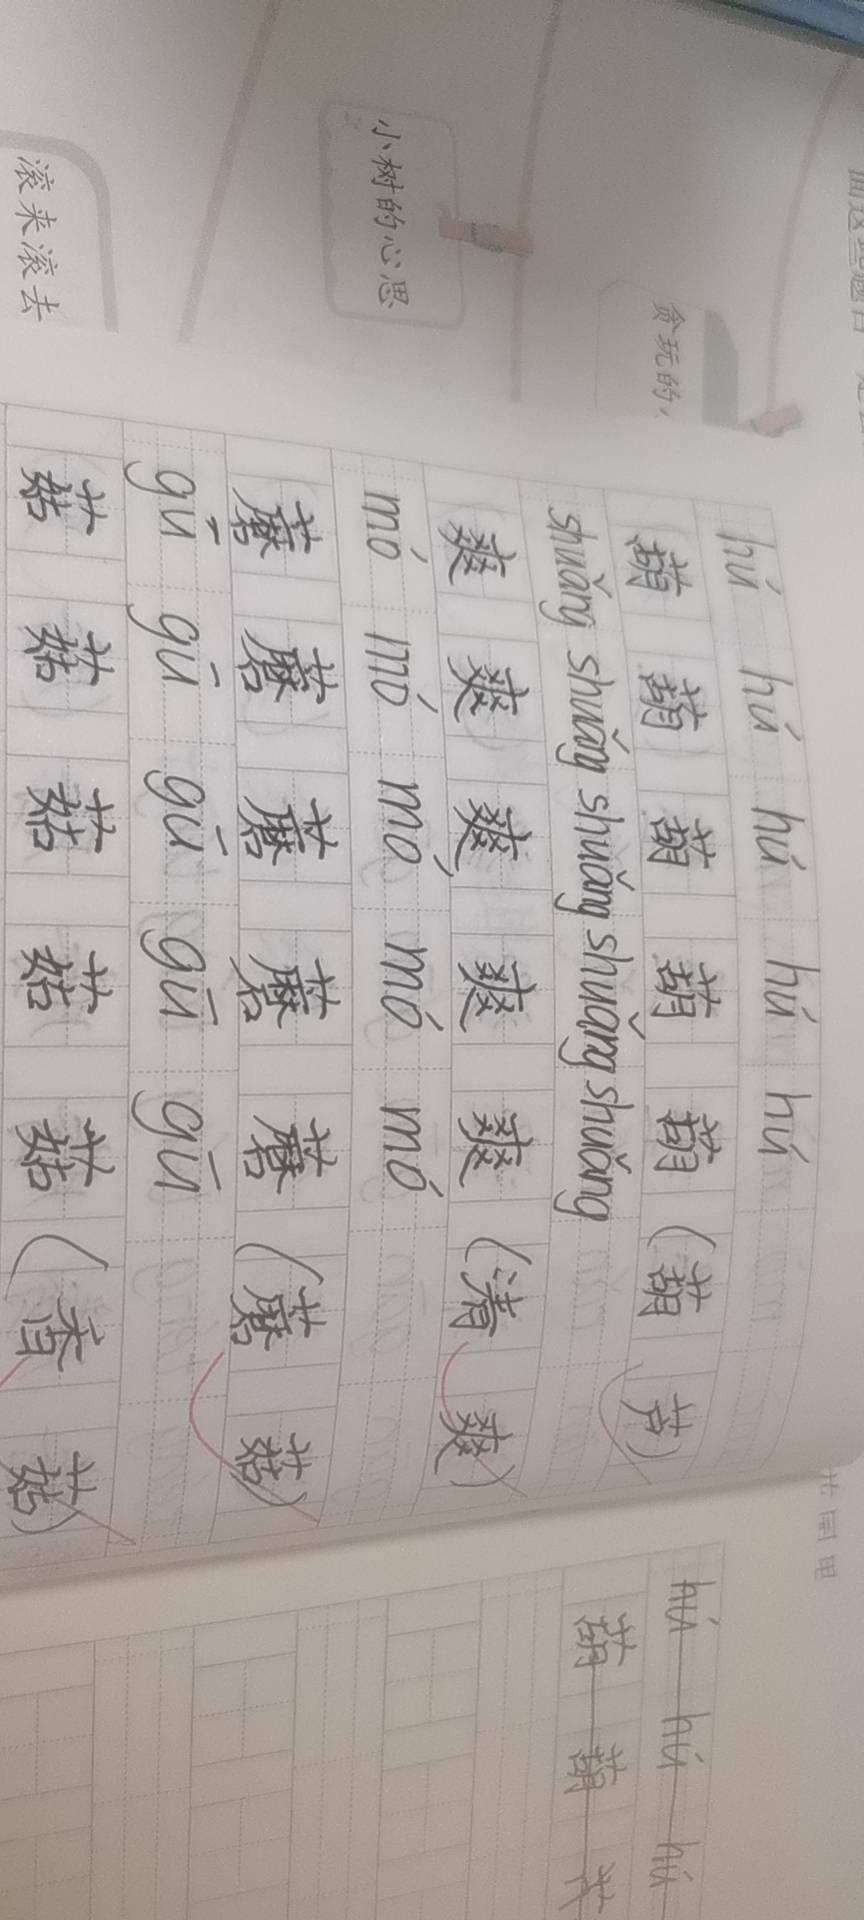 hú hú hú hú hú
葫 葫 葫 葫 葫 (葫 芦)
shuǎng shuǎng shuǎng shuǎng shuǎng
爽 爽 爽 爽 爽 (清 爽)
mó mó mó mó mó
蘑 蘑 蘑 蘑 蘑 (蘑 菇)
gū gū gū gū gū
菇 菇 菇 菇 菇 (香 菇)
贪玩的
小树的心思
滚来滚去
hú hú hú
葫 葫